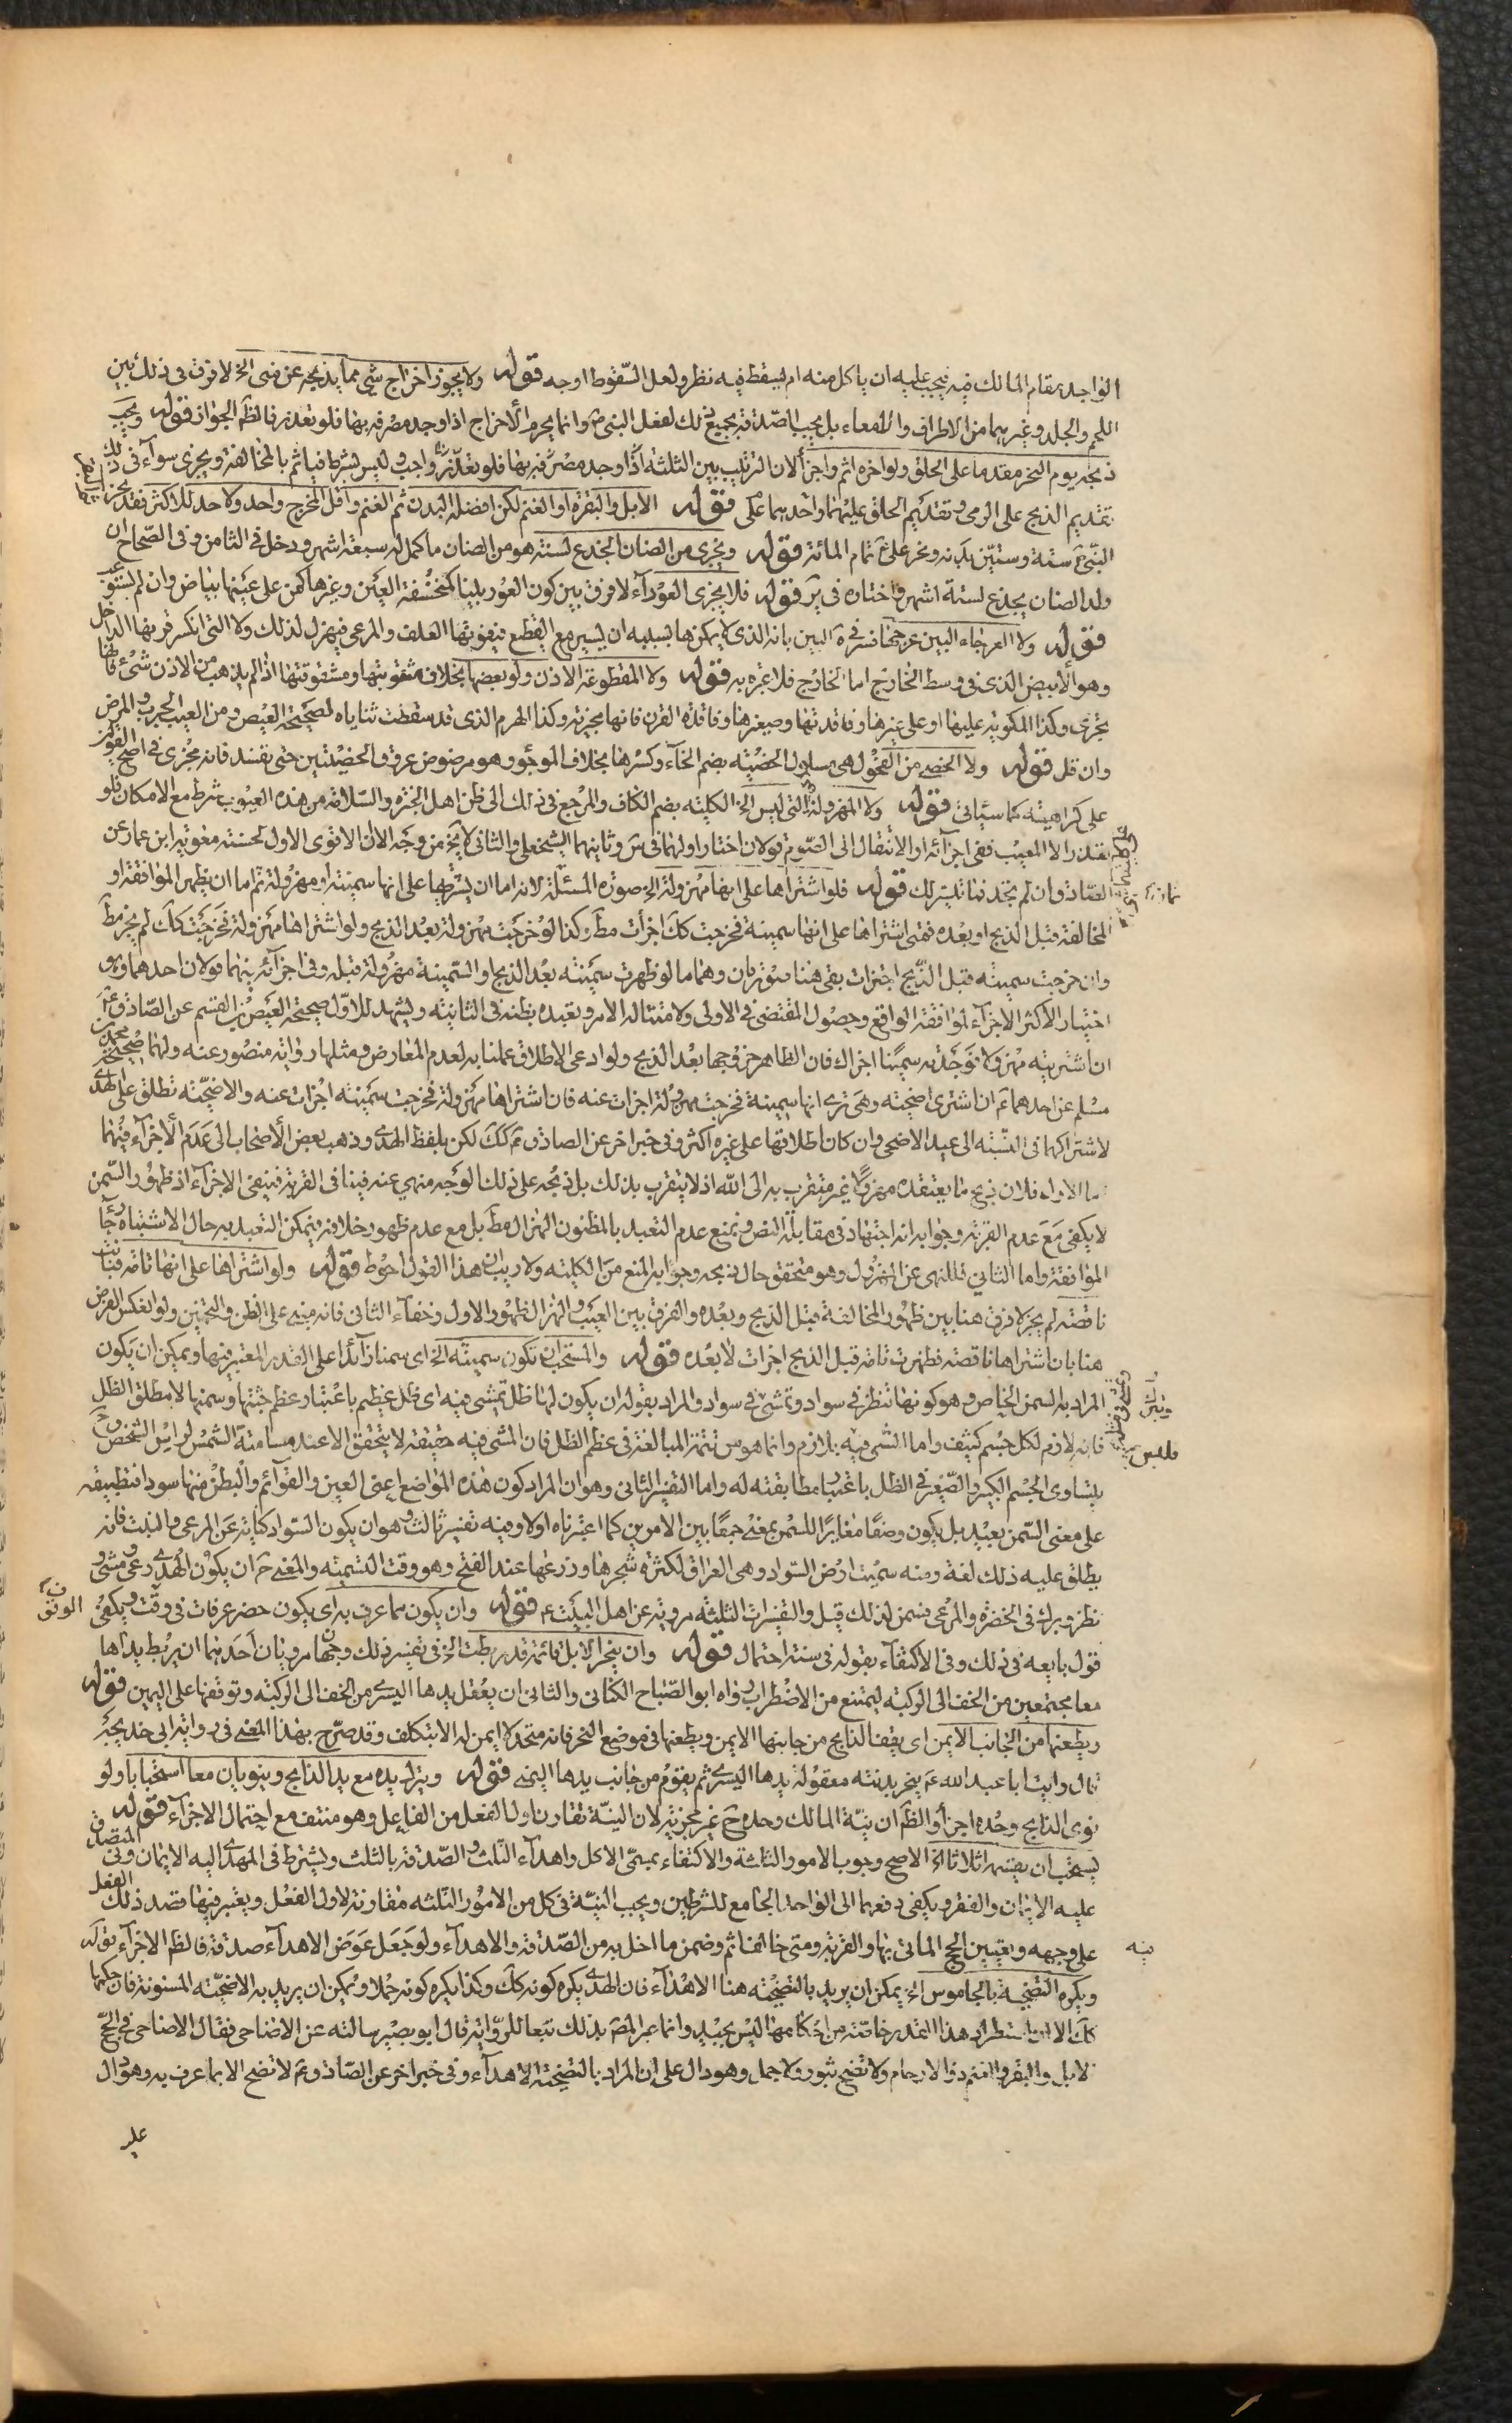 الواجد مقام المالك فيه فيجب عليه ان ياكل منه ام يسقط فيه نظر ولعل السقوط اوجه قوله ولا يجوز اخراج شئ مما يذبحه عن منى الخ لا فرق فى ذلك بين
اللحم والجلد وغيرهما من الاطراف والامعاء بل يجب الصدقة بجميع ذلك لفعل النبى ص وانما يحرم الاخراج اذا وجد مصرفه بها فلو تعذر فالظم الجواز قوله ويجب
ذبحه يوم النحر مقدما على الحلق ولو اخره اثم واجزأ لان الترتيب بين الثلثة اذا وجد مصرفه بها فلو تعذر واجب وليس بشرط فياثم بالمخالفة ويجزى سواء فى ذلك
تقديم الذبح على الرمى وتقديم الحلق عليهما واحدهما عكس قوله الابل والبقرة او الغنم لكن افضله البدن ثم الغنم واقل المخرج واحد ولا حد للاكثر فقد نحر
النبى ص ستة وستين بدنة ونحر على ع تمام المائة قوله ويجزى من الضان الجذع لسنته هو من الضان ما كمل له سبعة اشهر ودخل فى الثامن وفى الصحاح ان
ولد الضان يجذع لستة اشهر واختاره فى ير قوله فلا يجزى العوراء لا فرق بين كون العور بينا كمنخسفة العين وغيرها كمن على عينها بياض وان لم يستوعب
قوله ولا العرجاء البين عرجها فسر فى ة البين بانه الذى لا يمكنها بسببه ان يسير مع القطيع فيفوتها العلف والمرعى فيهزل لذلك ولا التى انكسر قرنها الداخل
وهو الابيض الذى فى وسط الخارج اما الخارج فلا عبرة به قوله ولا المقطوعة الاذن ولو بعضها بخلاف مثقوبتها ومشقوقتها اذا لم يذهب من الاذن شئ فانها
تجزى وكذا المكوية عليها او على غيرها وفاقدتها وصغيرها وفاقدة القرن فانها مجزية وكذا الهرم الذى قد سقطت ثناياه لصحيحة العيص ومن العيب الجرب والمرض
وان قل قوله ولا الخصى من الفحول هى مسلول الخصية بضم الخاء وكسرها بخلاف الموجؤ وهو مرضوض عروق الخصيتين حتى تفسد فانه مجزى فى اصح القولين
على كراهية كما سيأتى قوله ولا المهزولة التى ليس الخ الكلية بضم الكاف والمرجع فى ذلك الى ظن اهل الخبرة والسلامة من هذه العيوب شرط مع الامكان فلو
تعذر الا المعيب ففى اجزائه او الانتقال الى الصوم قولان اختار اولهما فى س وثانيهما الشيخ على والثانى لا يخ من وجه الا ان الاقوى الاول لحسنة معوية ابن عمار عن
الصادق وان لم تجد فما تيسر لك قوله فلو اشتراها على انها مهزولة الخ صورة المسئلة لانه اما ان يشتريها على انها سمينة او مهزولة ثم اما ان يظهر الموافقة او
المخالفة قبل الذبح او بعده فمتى اشتراها على انها سمينة فخرجت كك اجزأت مط وكذا لو خرجت مهزولة بعد الذبح ولو اشتراها مهزولة فخرجت كك لم يجز مط
وان خرجت سمينة قبل الذبح اجزات بقى هنا صورتان وهما ما لو ظهرت سمينة بعد الذبح او السمينة مهزولة قبله وفى اجزائه بينهما قولان احدهما وهو
اختيار الاكثر الاجزاء لموافقة الواقع وحصول المقتضى فى الاولى ولامتثاله الامر وتعبده بظنه فى الثانية ويشهد للاول صحيحة العيص بن القسم عن الصادق ع
ان اشتريته مهزولا فوجدته سمينا اجزاك فان الظاهر خروجها بعد الذبح ولو ادعى الاطلاق عملنا به لعدم المعارض ومثلها رواية منصور عنه ولهما صحيحة محمد بن
مسلم عن احدهما ع ان اشترى اضحية وهى ترى انها سمينة فخرجت مهزولة اجزات عنه فان اشتراها مهزولة فخرجت سمينة اجزات عنه والاضحية تطلق على الهدى
لاشتراكهما فى النسبة الى عيد الاضحى وان كان اطلاقها على غيره اكثر وفى خبر اخر عن الصادق ع كك لكن بلفظ الهدى وذهب بعض الاصحاب الى عدم الاجزاء فيهما
اما الاول فلان ذبح ما يعتقده مهزولا غير متقرب به الى الله اذ لا يتقرب بذلك بل ذبحه على ذلك الوجه منهى عنه فينافى القربة فينتفى الاجزاء اذ ظهور السمن
لا يكفى مع عدم القربة وجوابه انه اجتهاد فى مقابلة النص ونمنع عدم التعبد بالمظنون الهزال مط بل مع عدم ظهور خلافه فيمكن التعبد به حال الاشتباه رجأ
الموافقة واما الثانى فللنهى عن المهزول وهو متحقق حال ذبحه وجوابه المنع من الكلية ولا ريب ان هذا القول احوط قوله ولو اشتراها على انها تامة فبانت
ناقصة لم يجز لا فرق هنا بين ظهور المخالفة قبل الذبح وبعده والفرق بين العيب والهزال ظهور الاول وخفاء الثانى فانه مبنى على الظن والتخمين ولو انعكس الفرض
هنا بان اشتراها ناقصة فظهرت تامة قبل الذبح اجزات لا بعده قوله والمستحب ان تكون سمينة الخ اى سمنا زائدا على القدر المعتبر فيها ويمكن ان يكون
المراد به السمن الخاص وهو كونها تنظر فى سواد وتمشى فى سواد والمراد بقوله ان يكون لها ظل تمشى فيه اى ظل عظيم باعتبار عظم جثتها وسمنها لا مطلق الظل
فانه لازم لكل جسم كثيف واما المشى فيه بلازم وانما هو من تتمة المبالغة فى عظم الظل فان المشى فيه حقيقة لا يتحقق الا عند مسامتة الشمس لرأس الشخص وح
يتساوى الجسم الكبير والصغير فى الظل باعتبار مطابقته له واما التفسير الثانى وهو ان المراد كون هذه المواضع اعنى العين والقوائم والبطن منها سودا فتطبيقه
على معنى السمن بعيد بل يكون وصفا مغايرا للسمن بمعنى جمعا بين الامرين كما اعتبرناه اولا وفيه تفسير ثالث وهو ان يكون السواد كناية عن المرعى والنبت فانه
يطلق عليه ذلك لغة ومنه سميت ارض السواد وهى العراق لكثرة شجرها وزرعها عند الفتح وهو وقت التسمية والمعنى ح ان يكون الهدى رعى ومشى و
نظر وبرك فى الخضرة والمرعى فسمن لذلك قيل والتفسيرات الثلثة مروية عن اهل البيت ع قوله وان يكون مما عرف به اى يكون حضر عرفات فى وقت الوقوف ويكفى
قول بايعه فى ذلك وفى الاكتفاء بقوله فى سنته احتمال قوله وان ينحر الابل قائمة قد ربطت الخ فى تفسير ذلك وجهان مرويان احدهما ان يربط يداها
معا مجتمعين من الخف الى الركبة ليمتنع من الاضطراب رواه ابو الصباح الكنانى والثانى ان يعقل يدها اليسرى من الخف الى الركبة وتوقفها على اليمين قوله
ويطعنها من الجانب الايمن اى يقف الذابح من جانبها الايمن ويطعنها فى موضع النحر فانه متحد لا ايمن له الا بتكلف وقد صرح بهذا المعنى فى رواية ابى خديجة
قال رايت ابا عبد الله ع ينحر بدنته معقولة يدها اليسرى ثم يقوم من جانب يدها اليمنى قوله ويترك يده مع يد الذابح وينويان معا استحبابا ولو
نوى الذابح وحده اجزأ والظ ان نية المالك وحده ح غير مجزية لان النية تقارن اول الفعل من الفاعل وهو منتف مع احتمال الاجزاء قوله
يستحب ان يقسمه اثلاثا الخ الاصح وجوب الامور الثلثة والاكتفاء بمسمى الاكل واهداء الثلث والصدقة بالثلث ويشترط فى المهدى اليه الايمان وفى المتصدق
عليه الايمان والفقر ويكفى دفعهما الى الواحد الجامع للشرطين ويجب النية فى كل من الامور الثلثة مقارنة لاول الفعل ويعتبر فيها قصد ذلك الفعل
على وجهه وتعيين الحج الماتى بها والقربة ومتى خالف اثم وضمن ما اخل به من الصدقة والاهداء ولو جعل عوض الاهداء صدقة فالظ الاجزاء قوله
ويكره التضحية بالجاموس الخ يمكن ان يريد بالتضحية هنا الاهداء فان الهدى يكره كونه كك وكذا يكره كونه جملا ويمكن ان يريد به الاضحية المسنونة فان حكمها
كك الا ان استطراد هذا القدر خاصة من احكامها ليس بجيد وانما عبر المص بذلك تبعا للرواية قال ابو بصير سالته عن الاضاحى فقال الاضاحى فى الحج
الابل والبقر والغنم ذوا الارحام ولا تضح بثور ولا جمل وهو دال على ان المراد بالتضحية الاهداء وفى خبر اخر عن الصادق ع لا تضح الا بما عرف به وهو دال
على